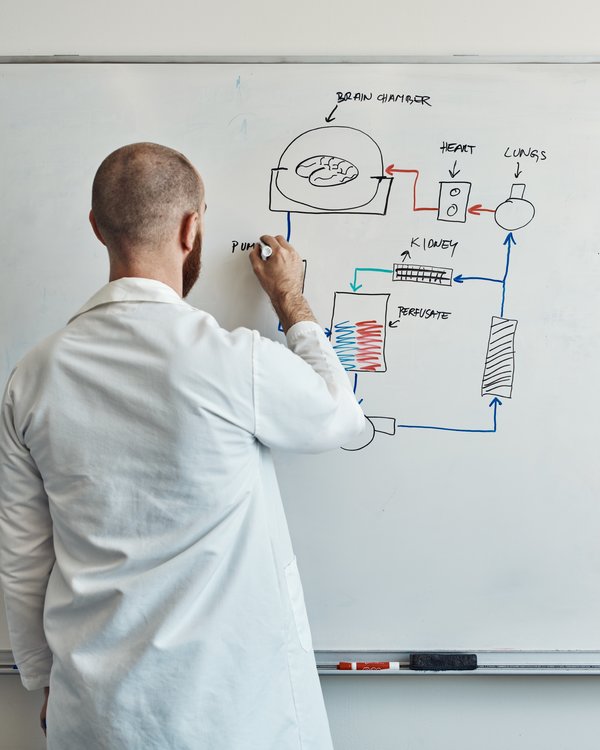 BRAIN CHAMBER
HEART
LUNGS
KIDNEY
PUM
PERFUSATE